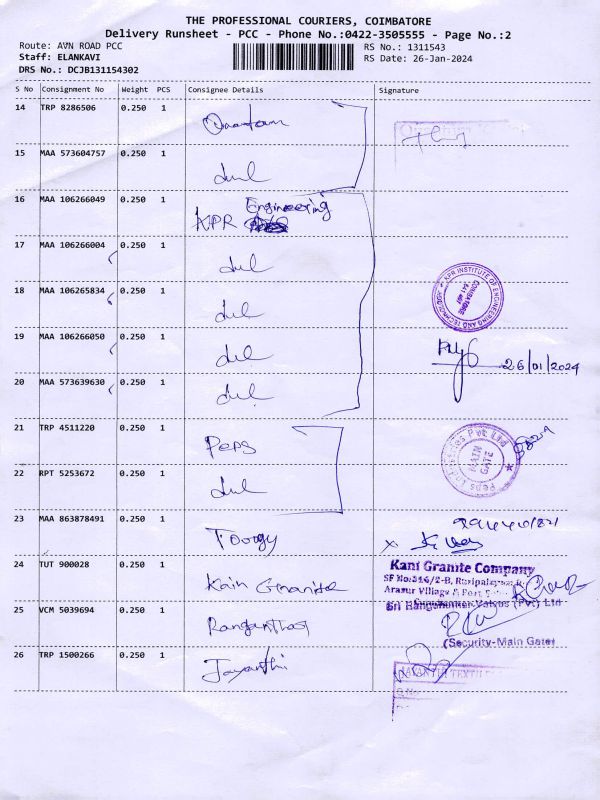 THE PROFESSIONAL COURIERS, COIMBATORE
Delivery Runsheet - PCC - Phone No.:0422-3505555 - Page No.:2
Route: AVN ROAD PCC RS No.: 1311543
Staff: ELANKAVI RS Date: 26-Jan-2024
DRS No.: DCJB131154302
S No Consignment No Weight PCS Consignee Details Signature
14 TRP 8286506 0.250 1
15 MAA 573604757 0.250 1
16 MAA 106266049 0.250 1 KPR Engineering
17 MAA 106266004 0.250 1
18 MAA 106265834 0.250 1
KPR INSTITUTE OF ENGINEERING AND TECHNOLOGY
COIMBATORE
641 407
19 MAA 106266050 0.250 1
26/01/2024
20 MAA 573639630 0.250 1
21 TRP 4511220 0.250 1 Peps
Peps Industries Pvt Ltd
MAIN
GATE
22 RPT 5253672 0.250 1
23 MAA 863878491 0.250 1
24 TUT 900028 0.250 1 Kain Granite
Kani Granite Company
SF No:316/2-B,
Arasur Village & Post
25 VCM 5039694 0.250 1
Sri Ranganathar Valves (Pvt) Ltd
(Security-Main Gate)
26 TRP 1500266 0.250 1 Jayanthi
JAYANTHI TEXTILE